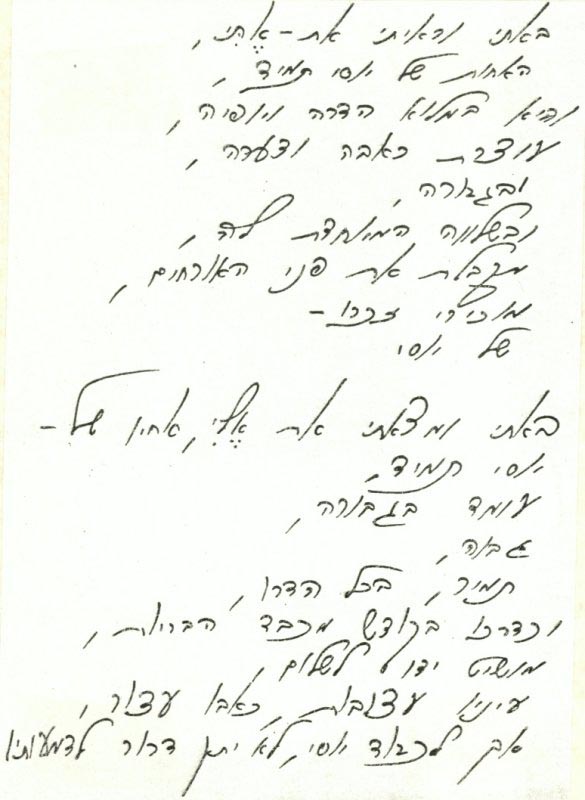 באתי וראיתי את-אֶתִי,
האחות של יוסי תמיד,
והיא במלוא הדרה ויופיה,
עוצרת כאבה וצערה,
ובגבורה,
ובשלווה המיוחדת לה,
מקבלת את פני האורחים,
מוקירי זכרו-
של יוסי
באתי ומצאתי את אֶלִי, אחיו של-
יוסי תמיד,
עומד בגבורה,
גבוה,
תמיר, בכל הדרו,
וכדרכו בקודש מכבד הבריות,
מושיט ידו לשלום,
עיניו עצובות, כאבו עצור,
אך לכבוד יוסי, לא יתן דרור לדמעותיו